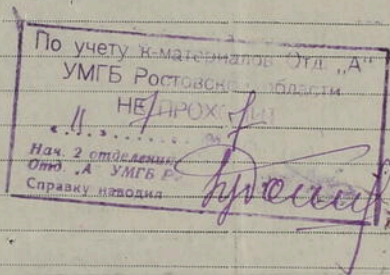 По учету к-материалов Отд. „А"
УМГБ Ростовской области
НЕ ПРОХОДИТ
„11"
Нач. 2 отделения
Отд. „А" УМГБ Р
Справку наводил